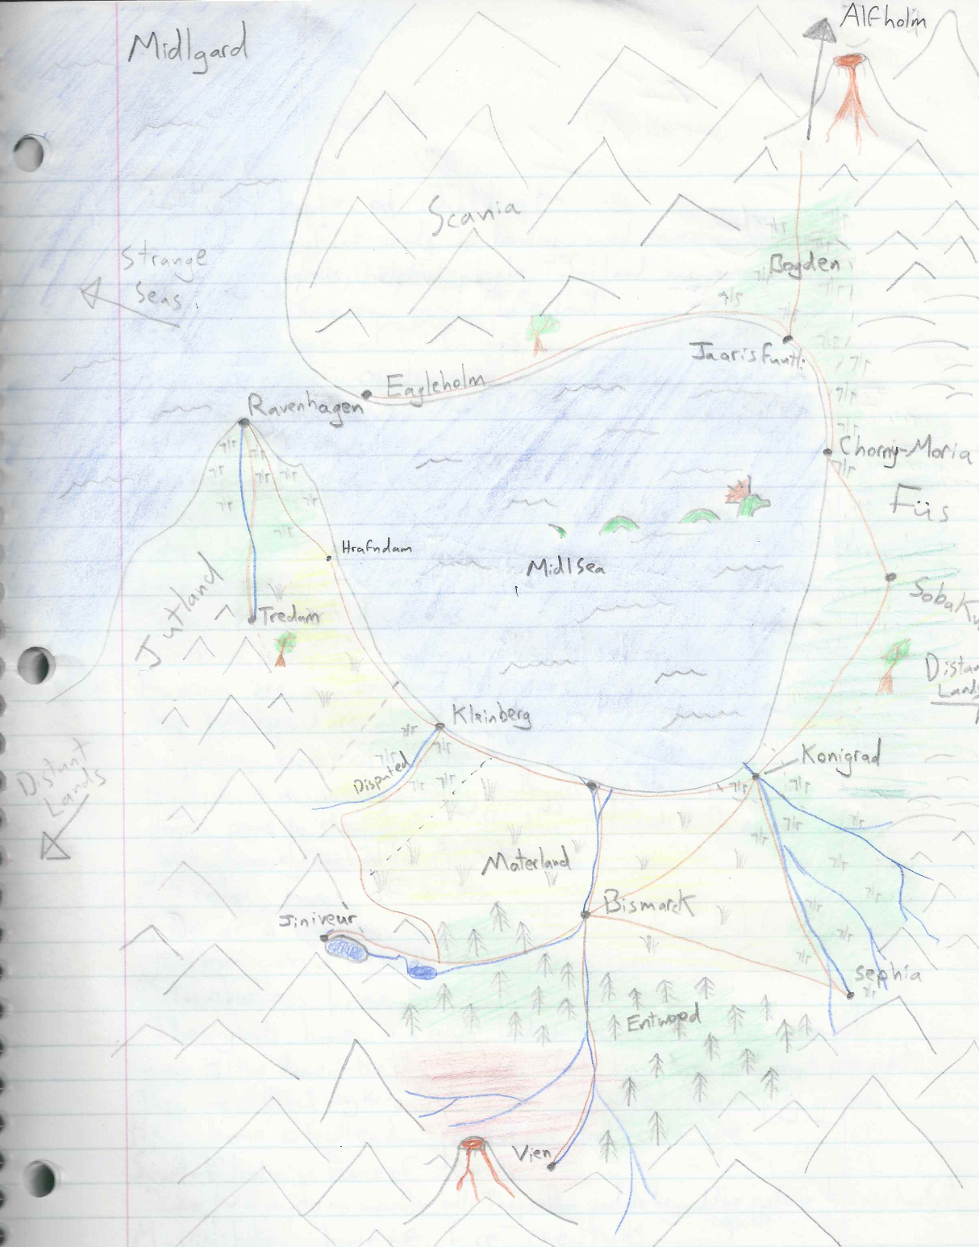 Alfholm
Midlgard
Scania
Strange
Seas.
Bogden
Jaarisfuntl:
Eagleholm
Ravenhagen
Chorny-Moria
Füs
Hrafndam
Midlsea
Jutland
Tredam
Kleinberg
Konigrad
Distant
Lands
Disputed
Materland
Bismarck
Jiniveur
Sephia
Entwood
Vien